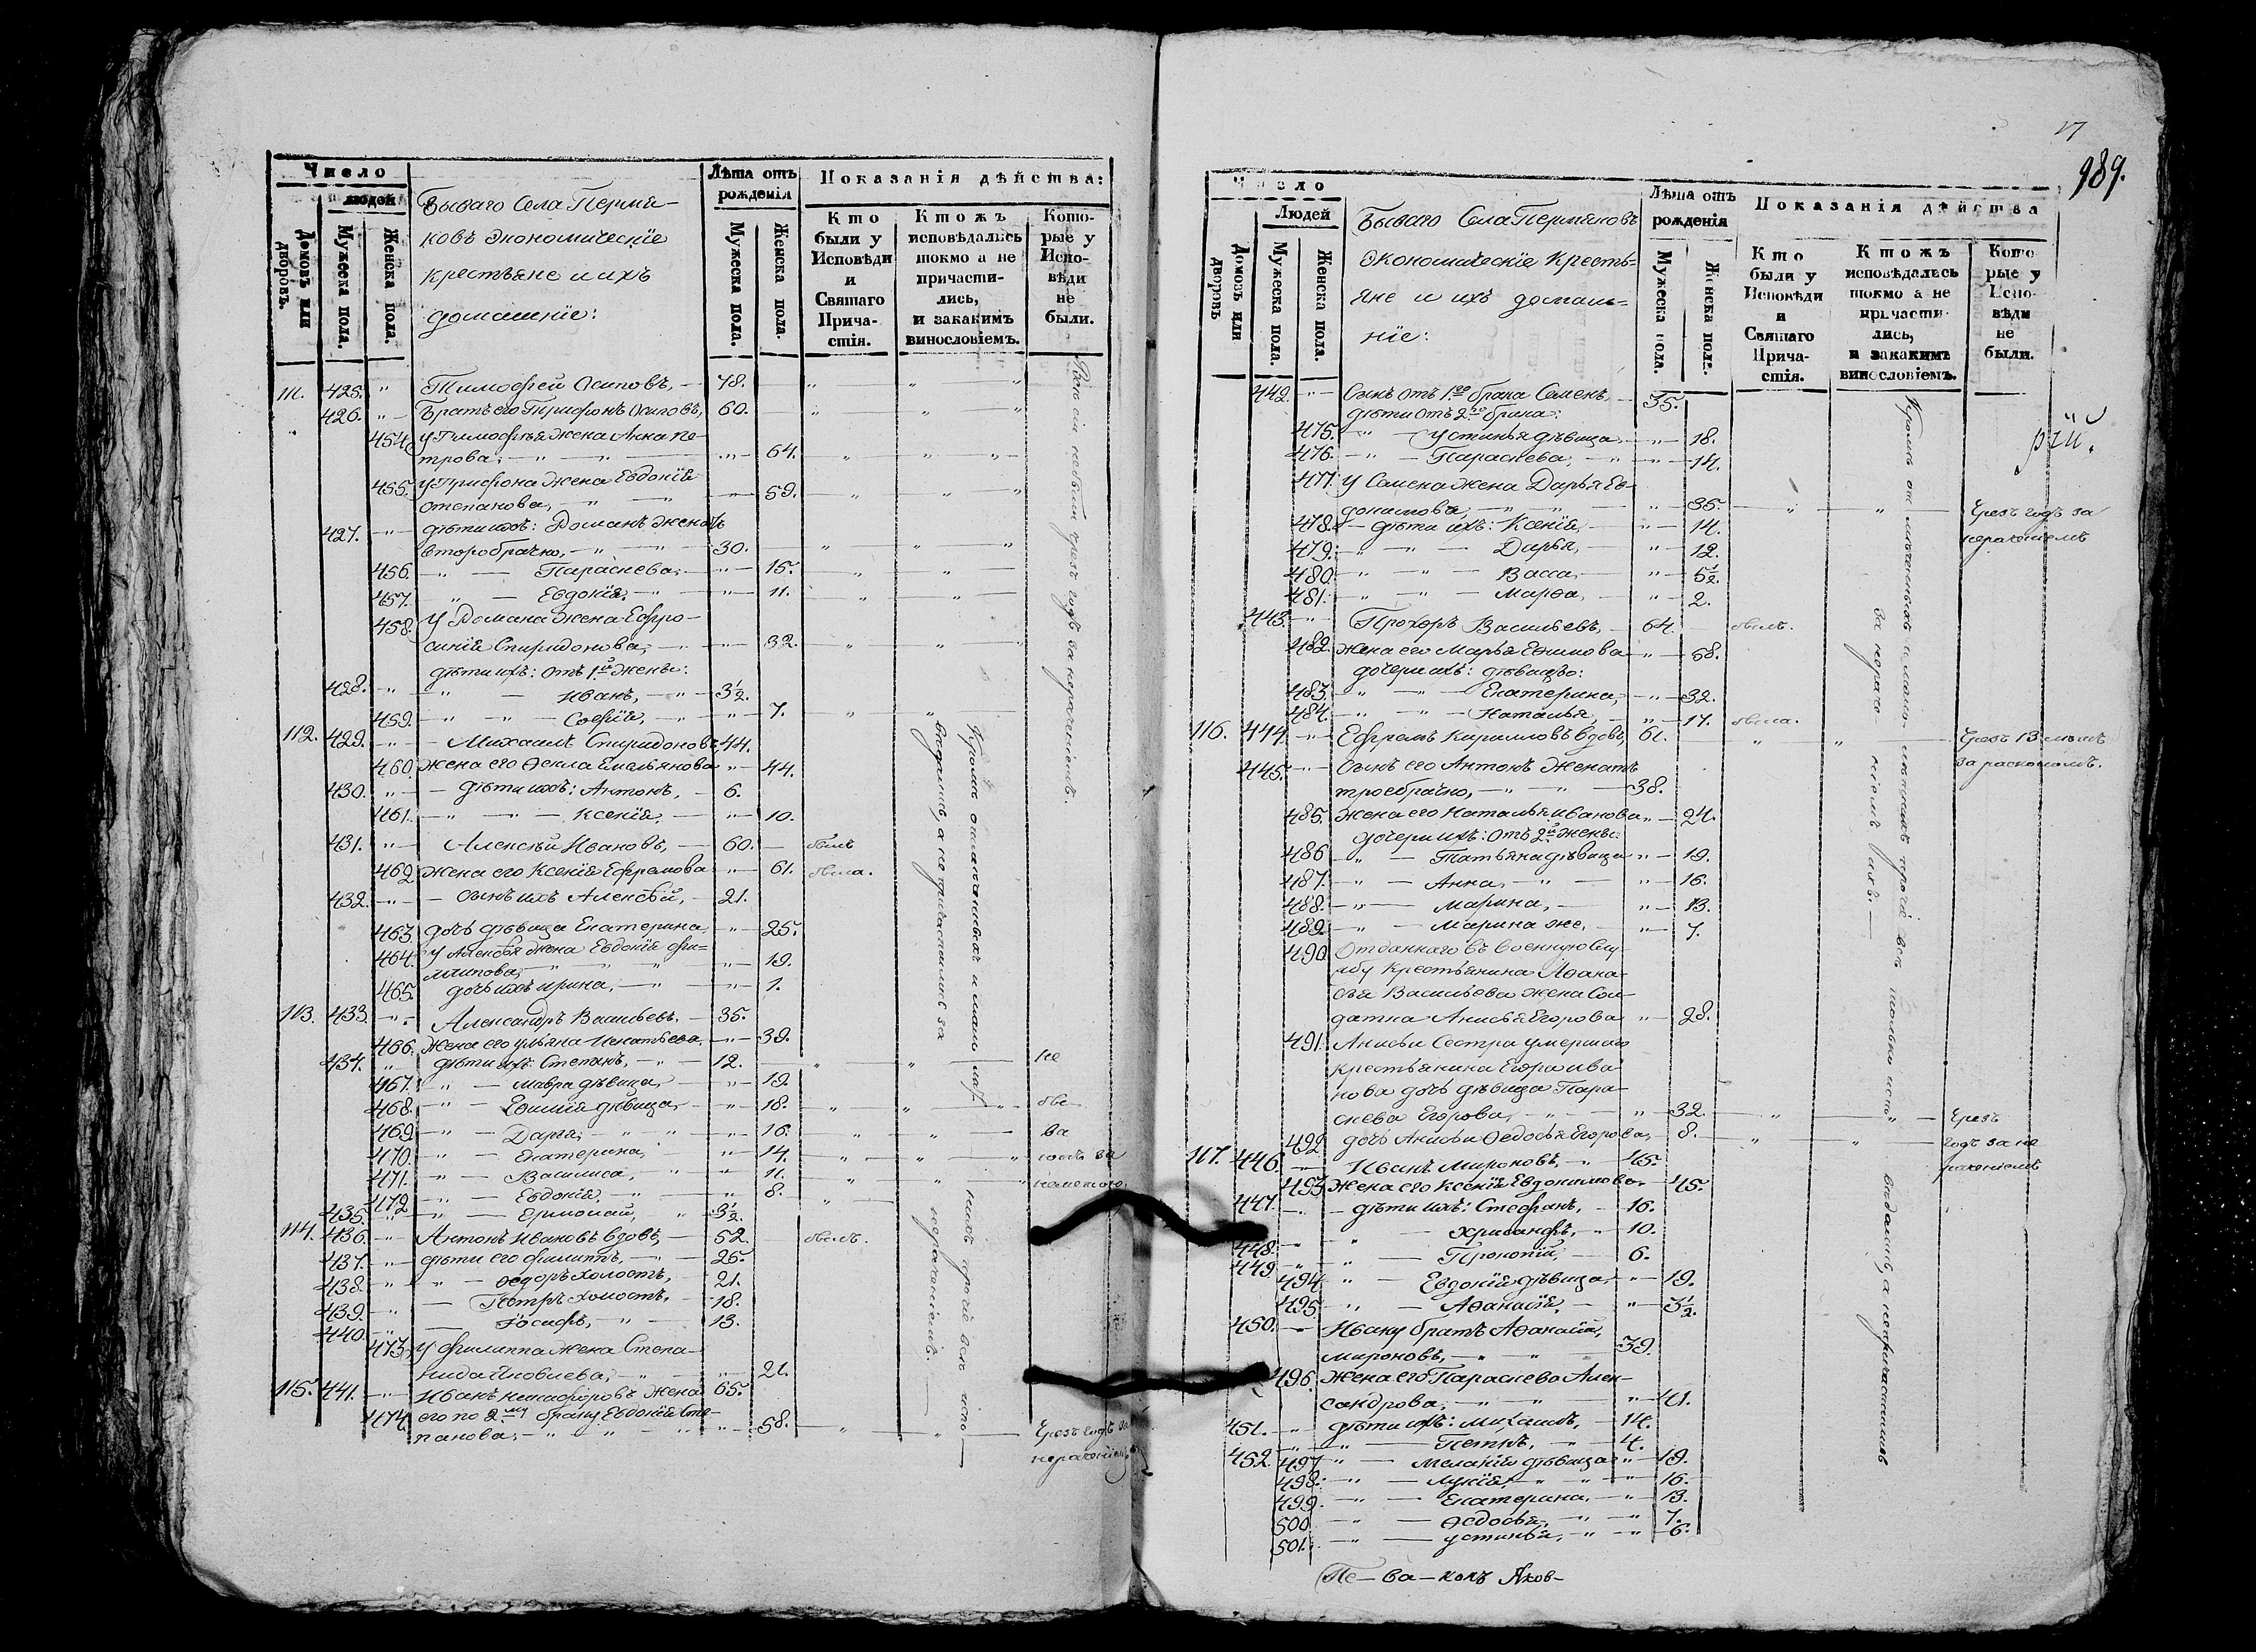 Число
людей
Домовъ или дворовъ.
Мужеска пола.
Женска пола.
Бываго Села Пермя-
ковъ экономическіе
крестьяне и ихъ
домашніе:
Лѣта отъ рожденія
Мужеска пола.
Женска пола.
Показанія дѣйства:
Кто были у Исповѣди и Святаго Причастія.
Ктожъ исповѣдались токмо а не причастились, и закакимъ винословіемъ.
Которые у Исповѣди не были.
111. 425. " Тимофей Осиповъ, — 78. " " "
426. " Братъ его Трифонъ Осиповъ, 60. " " "
454. У Тимофея жена Анна Пе-
трова, — " — " — 64. " " "
455. У Трифона жена Евдокія
Степанова, " " 59. " " "
427. — дѣти ихъ: Романъ женатъ
второбрачно, — " — 30. " " "
456. — " — Параскева, — " 15. " "
457. " — Евдокія, — " " 11. " "
458. У Романа жена Ефро-
синія Спиридонова, — " 32. " " "
дѣти ихъ: отъ 1й жены:
428. " — " — Иванъ, — " 3½.
459. — " — " — Софія, — " " 7. " "
112. 429. — " — Михаилъ Спиридоновъ, 44.
460. Жена его Фекла Емельянова " — 44.
430. " — дѣти ихъ: Антонъ, — 6.
461. — " — " — Ксенія, — " 10.
431. " — Алексѣй Ивановъ, — 60. — былъ
462. Жена его Ксенія Ефремова " — 61. была.
432. — " — сынъ ихъ Алексѣй, — 21.
463. дочь дѣвица Екатерина, — " 25.
464. У Алексѣя жена Евдокія Фи-
липпова, — " " " 19.
465. дочь ихъ Ирина, — " " 1.
113. 433. — " — Александръ Васильевъ, — 35.
466. Жена его Ульяна Игнатьева, — " 39.
434. " дѣти ихъ: Степанъ, — " 12. " " не
467. — " — Мавра дѣвица, — " 19.
468. — " — Евфимія дѣвица, — " 18. " " "
469. — " — Дарья, — " " 16. " " "
470. — " — Екатерина, " 14. " " "
471. — " — Василиса, " " 11. " "
472. — " — Евдокія, — " " 8. "
435. " — " — Ермолай, " 3½.
114. 436. — " — Антонъ Ивановъ вдовъ, — 52. былъ.
437. — " — дѣти его Филиппъ, — " 25.
438. " " — Ѳедоръ холостъ, — 21.
439. — " — Петръ холостъ, — 18.
440. — " — Іосифъ, — " — 13.
473. У Филиппа жена Степа-
нида Яковлева, — " 21.
115. 441. — " — Иванъ Никифоровъ жена 65.
474. его по 2му браку Евдокія Сте-
панова, — " " " 58. " " Чрезъ годъ за
нераченіемъ
Кромѣ отмѣченныхъ и малолѣт-
нихъ прочіе всѣ испо-
вѣдались, а не причастились за
нераченіемъ.
989.
Число
Людей
Домовъ или дворовъ
Мужеска пола.
Женска пола.
Бываго Села Пермяковъ
экономическіе кресть-
яне и ихъ домаш-
ніе:
Лѣта отъ рожденія
Мужеска пола.
Женска пола.
Показанія дѣйства
Кто были у Исповѣди и Святаго Причастія.
Ктожъ исповѣдались токмо а не причастились, и закакимъ винословіемъ.
Которые у Исповѣди не были.
442. — " — Сынъ отъ 1го брака Семенъ, 35.
дѣти отъ 2го брака:
475. — " — Устинья дѣвица, — " 18.
476. — " — Параскева, — " " 14.
477. У Семена жена Дарья Ев-
докимова, — " " " 35. " " Чрезъ годъ за
нераченіемъ
478. — дѣти ихъ: Ксенія, " 14.
479. — " — " — Дарья, — " 12.
480. — " — " — Васса, " 5½.
481. — " — " — Марѳа, — " 2.
443. — " — Прохоръ Васильевъ, — 64. былъ.
482. Жена его Марья Ефимова " 58.
дочери ихъ: дѣвицы:
483. — " — " — Екатерина, — " 32.
484. — " — " — Наталья, — " 17. была.
116. 444. — " — Ефремъ Кирилловъ вдовъ, 61. " " Чрезъ 13 лѣтъ
за расколомъ.
445. — " — Сынъ его Антонъ женатъ
троебрачно, — " " 38.
485. Жена его Наталья Иванова " — 24.
дочери ихъ: отъ 2й жены:
486. — " — Татьяна дѣвица " 19.
487. — " — Анна, — " " 16.
488. — " — Марина, — " 13.
489. — " — Марина же, — " 7.
490. Отданнаго въ военную слу-
жбу крестьянина Аѳана-
сья Васильева жена Сол-
датка Анисья Егорова " 28.
491. Анисьи Сестра умершаго
крестьянина Егора Ива-
нова дочь дѣвица Пара-
скева Егорова, — " " 32. " " Чрезъ
492. дочь Анисьи Ѳедосья Егорова, 8. " " годъ за не
раченіемъ
117. 446. — Иванъ Мироновъ, — " 45.
493. Жена его Ксенія Евдокимова — 45.
447. — " — дѣти ихъ: Стефанъ, — 16.
448. — " — Хрисанфъ, — " 10.
449. — " — Прокопій, — 6.
494. " — Евдокія дѣвица, — " 19.
495. — " — Аѳанасія, — " 3½.
450. — Ивану братъ Аѳанасій
Мироновъ, — " " 39.
496. Жена его Параскева Алек-
сандрова, — " " " 41.
451. — " — дѣти ихъ: Михаилъ, — 14.
452. — " — Петръ, — " — 4.
497. " — Меланія дѣвица " 19.
498. — " — Лукія, — " " 16.
499. — " — Екатерина, — " 13.
500. — " — Ѳедосья, — " " 7.
501. — " — Устинья, — " " 6.
Кромѣ отмѣченныхъ и малолѣтнихъ прочіе всѣ только испо-
вѣдались, а непричастились
за нераченіемъ
Пе — ва — конъ Яков-